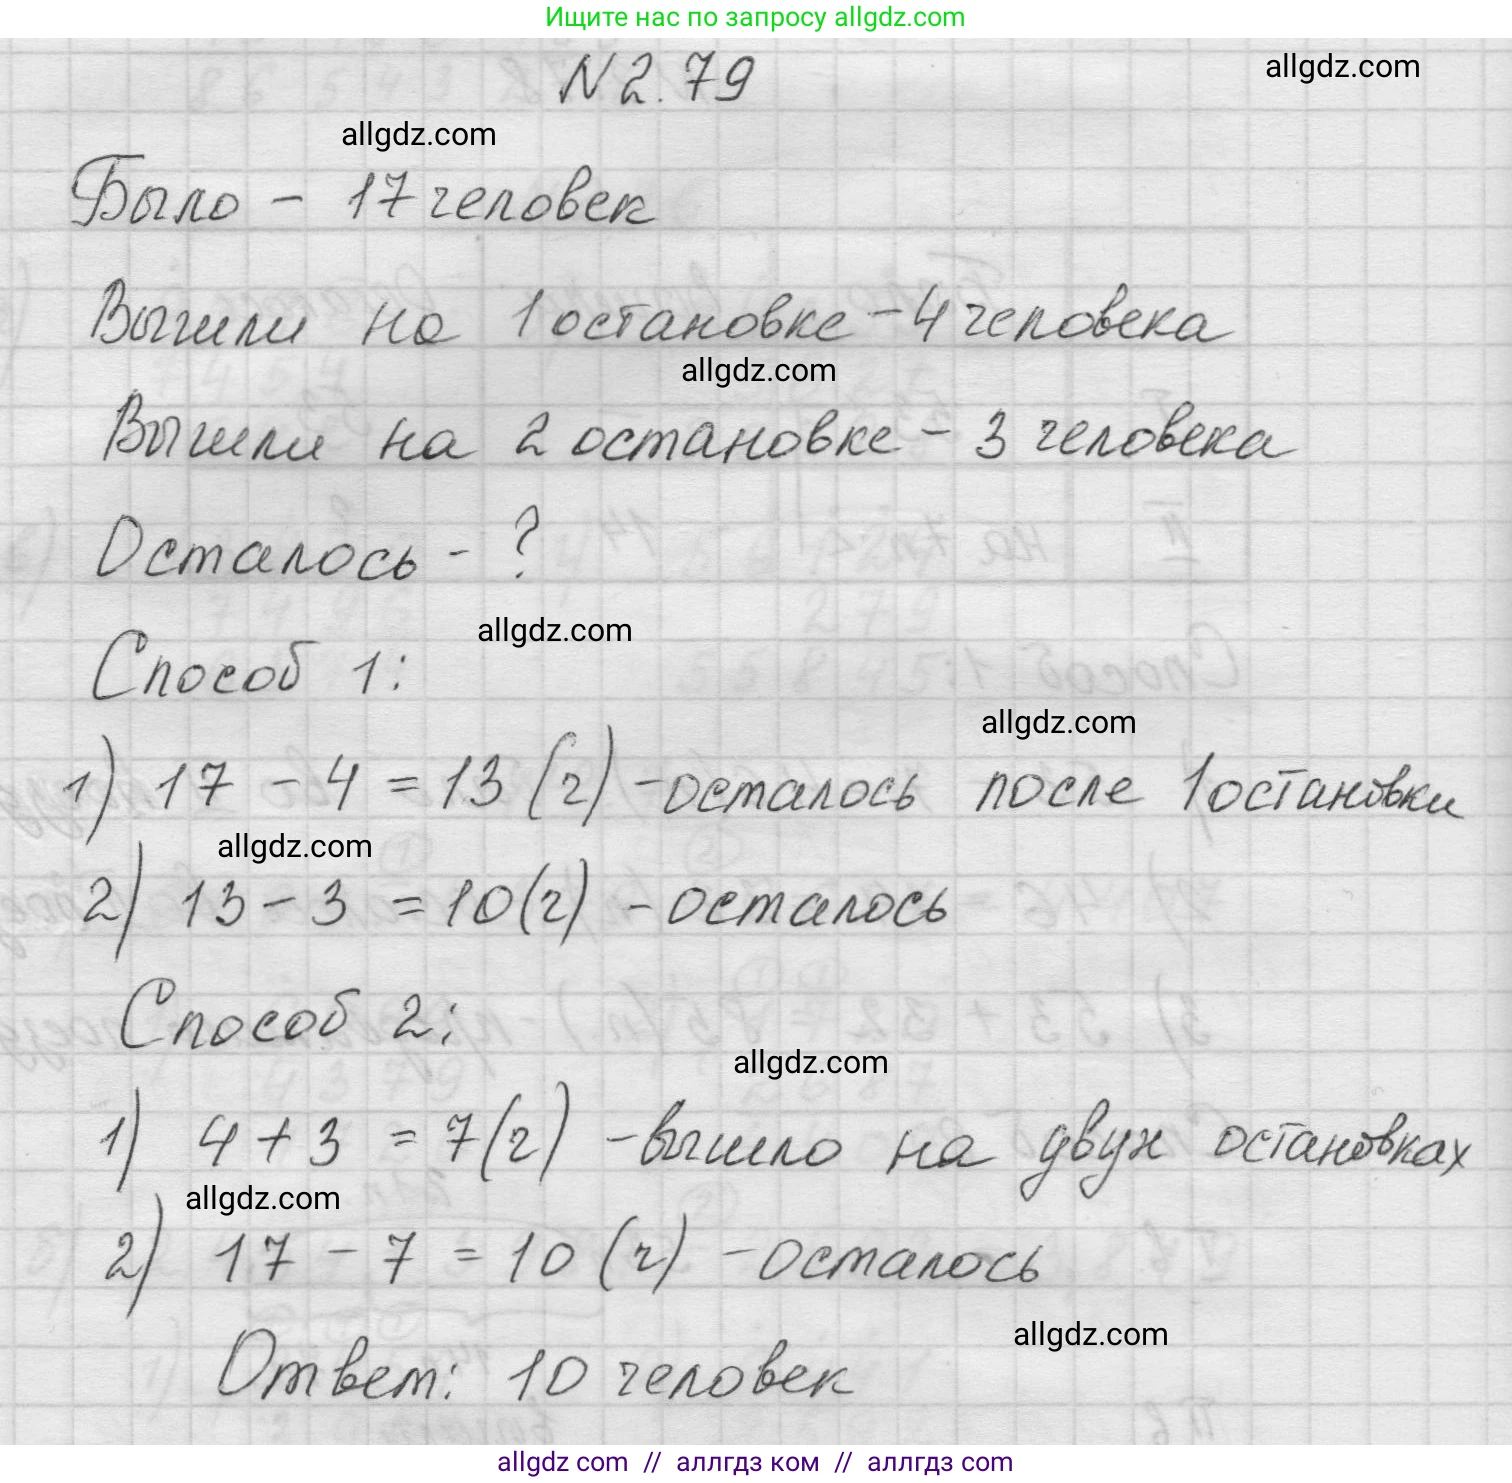 Ищите нас по запросу allgdz.com
N 2.79
allgdz.com
allgdz.com
Было - 17 человек
Вышли на 1 остановке - 4 человека
allgdz.com
Вышли на 2 остановке - 3 человека
Осталось - ?
allgdz.com
Способ 1:
allgdz.com
1) 17 - 4 = 13 (ч) - осталось после 1 остановки
allgdz.com
2) 13 - 3 = 10 (ч) - осталось
Способ 2:
allgdz.com
1) 4 + 3 = 7 (ч) - вышло на двух остановках
allgdz.com
2) 17 - 7 = 10 (ч) - осталось
allgdz.com
Ответ: 10 человек
allgdz.com // аллгдз ком // аллгдз.com